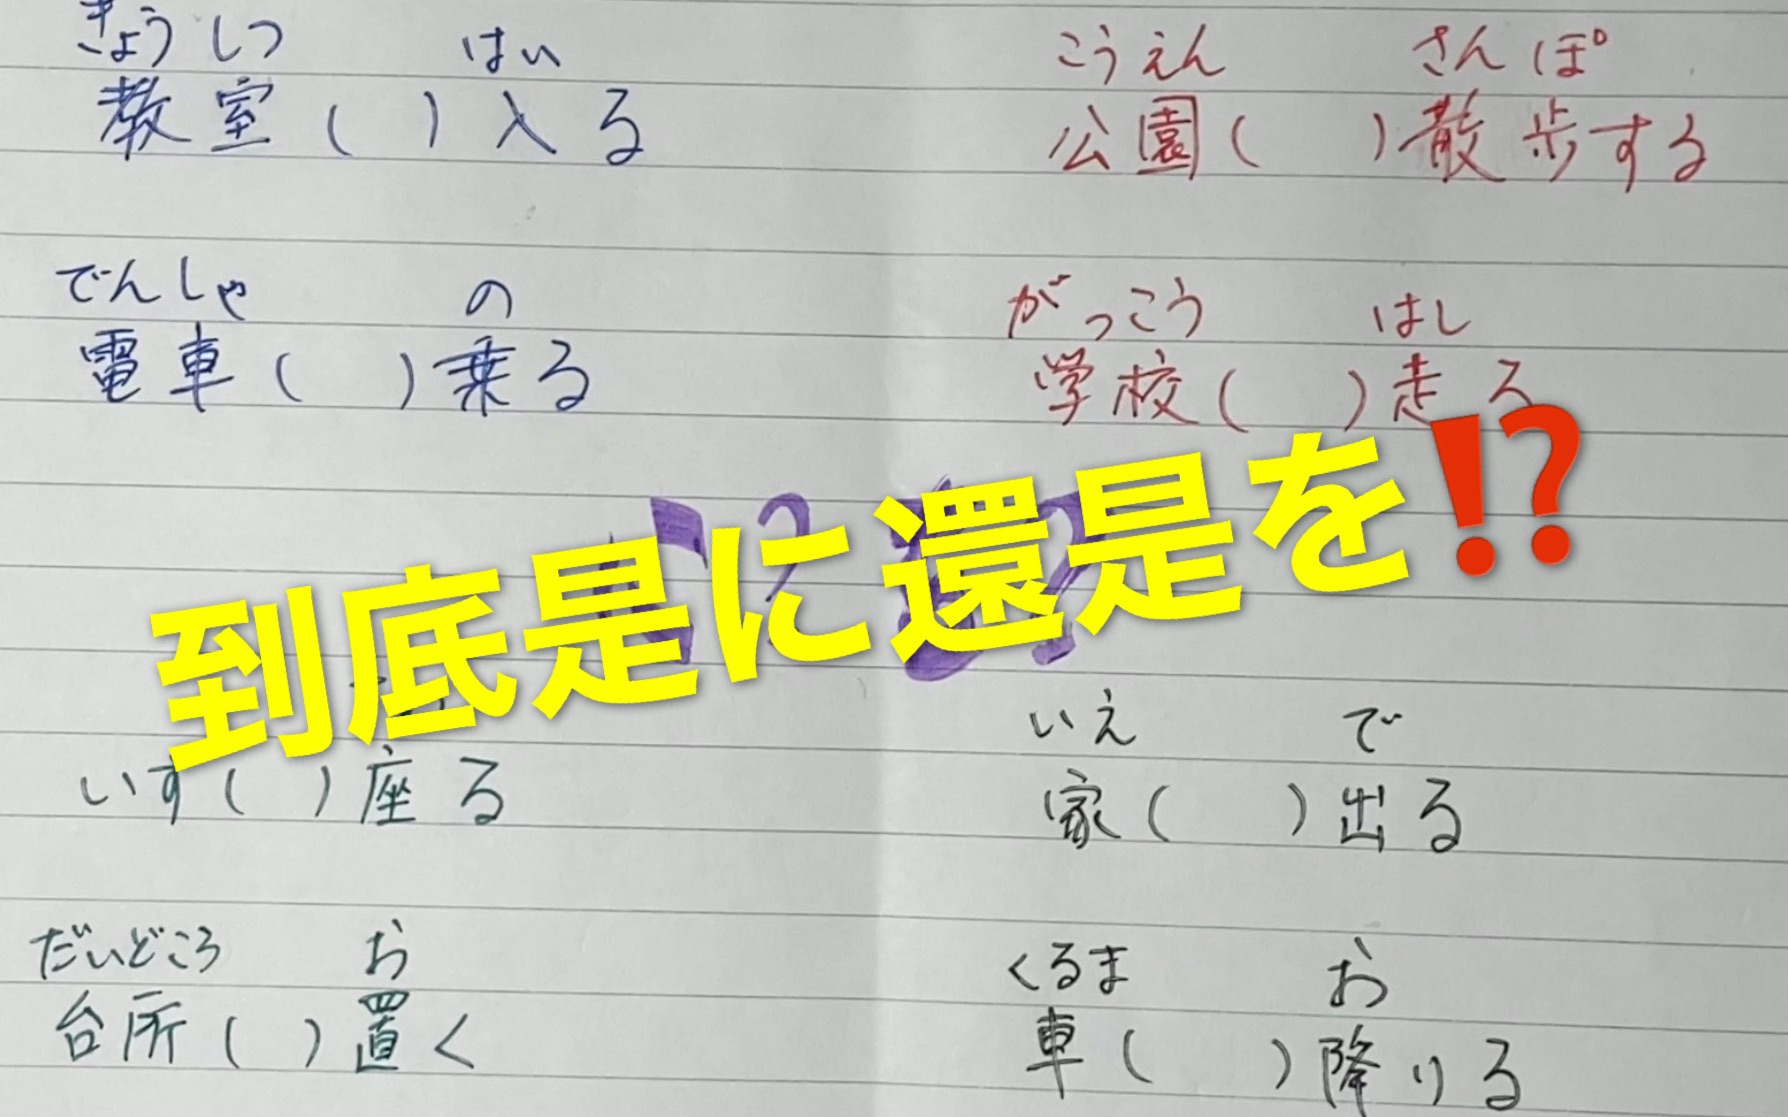 きょうしつ はい
教室( )入る
こうえん さんぽ
公園( )散歩する
でんしゃ の
電車( )乗る
がっこう はし
学校( )走る
到底是に還是を⁉
いす( )座る
いえ で
家( )出る
だいどころ お
台所( )置く
くるま お
車( )降りる